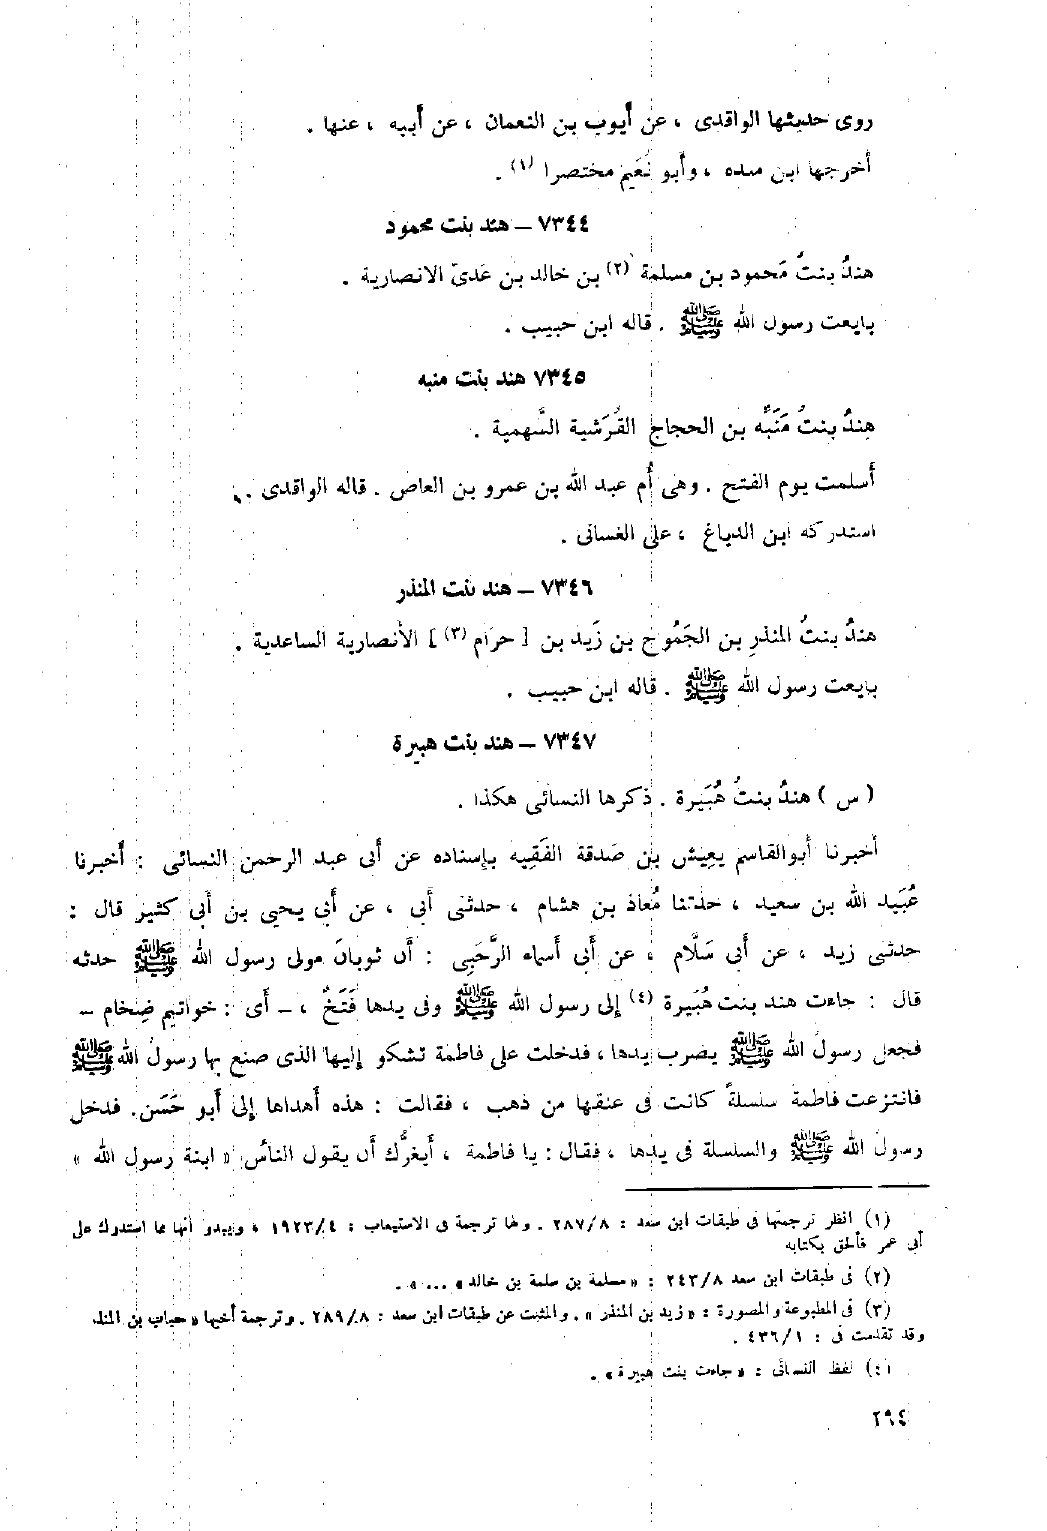 روى حديثها الواقدى ، عن أيوب بن النعمان ، عن أبيه ، عنها .
أخرجها ابن منده ، وأبو نُعَيم مختصرا (١) .
٧٣٤٤ ــ هند بنت محمود
هندُ بنتُ مَحمود بن مسلمة (٢) بن خالد بن عَدىّ الانصارية .
بايعت رسول الله ﷺ . قاله ابن حبيب .
٧٣٤٥ هند بنت منبه
هِندُ بنتُ مُنَبِّه بن الحجاج القُرَشية السَّهمية .
أسلمت يوم الفتح . وهى أُم عبد الله بن عمرو بن العاص . قاله الواقدى .
استدركه ابن الدباغ ، على الغسانى .
٧٣٤٦ ــ هند بنت المنذر
هندُ بنتُ المنذرِ بن الجَمُوح بن زَيد بن [ حرَام (٣) ] الأنصارية الساعدية .
بايعت رسول الله ﷺ . قاله ابن حبيب .
٧٣٤٧ ــ هند بنت هبيرة
( س ) هندُ بنتُ هُبَيرة . ذكرها النسائى هكذا .
أخبرنا أبوالقاسم يعِيش بن صَدقة الفَقِيه بإسناده عن أبى عبد الرحمن النسائى : أخبرنا
عُبَيد الله بن سعيد ، حدثنا مُعاذ بن هشام ، حدثنى أبى ، عن أبى يحيى بن أبى كثير قال :
حدثنى زيد ، عن أبى سَلَّام ، عن أبى أسماء الرَّحَبِى : أن ثوبانَ مولى رسول الله ﷺ حدثه
قال : جاءت هند بنت هُبَيرة (٤) إلى رسول الله ﷺ وفى يدها فَتَخٌ ، ــ أى : خواتيم ضِخام ــ
فجعل رسولُ الله ﷺ يضرب يدها ، فدخلت على فاطمة تشكو إليها الذى صنع بها رسولُ الله ﷺ
فانتزعت فاطمة سلسلةً كانت فى عنقها من ذهب ، فقالت : هذه أهداها إلىَّ أبو حَسَن. فدخل
رسولُ الله ﷺ والسلسلة فى يدها ، فقال : يا فاطمة ، أيغرُّك أن يقول الناسُ « ابنة رسول الله »
(١) انظر ترجمتها فى طبقات ابن سعد : ٢٨٧/٨ . ولها ترجمة فى الاستيعاب : ١٩٢٣/٤ ، ويبدو أنها مما استدرك على
أبى عمر فألحق بكتابه
(٢) فى طبقات ابن سعد ٢٤٣/٨ : «مسلمة بن سلمة بن خالد» ... » .
(٣) فى المطبوعة والمصورة : «زيد بن المنذر» . والمثبت عن طبقات ابن سعد : ٢٨٩/٨ . وترجمة أخيها «حباب بن المنذ
وقد تقدمت فى : ٤٣٦/١ .
(٤) لفظ النسائى : «جاءت بنت هبيرة» .
٢٩٤